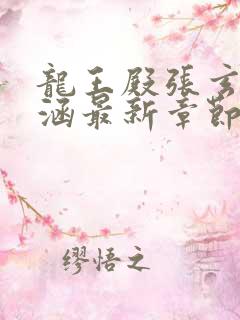 龍王殿張玄
涵最新章節
缪悟之